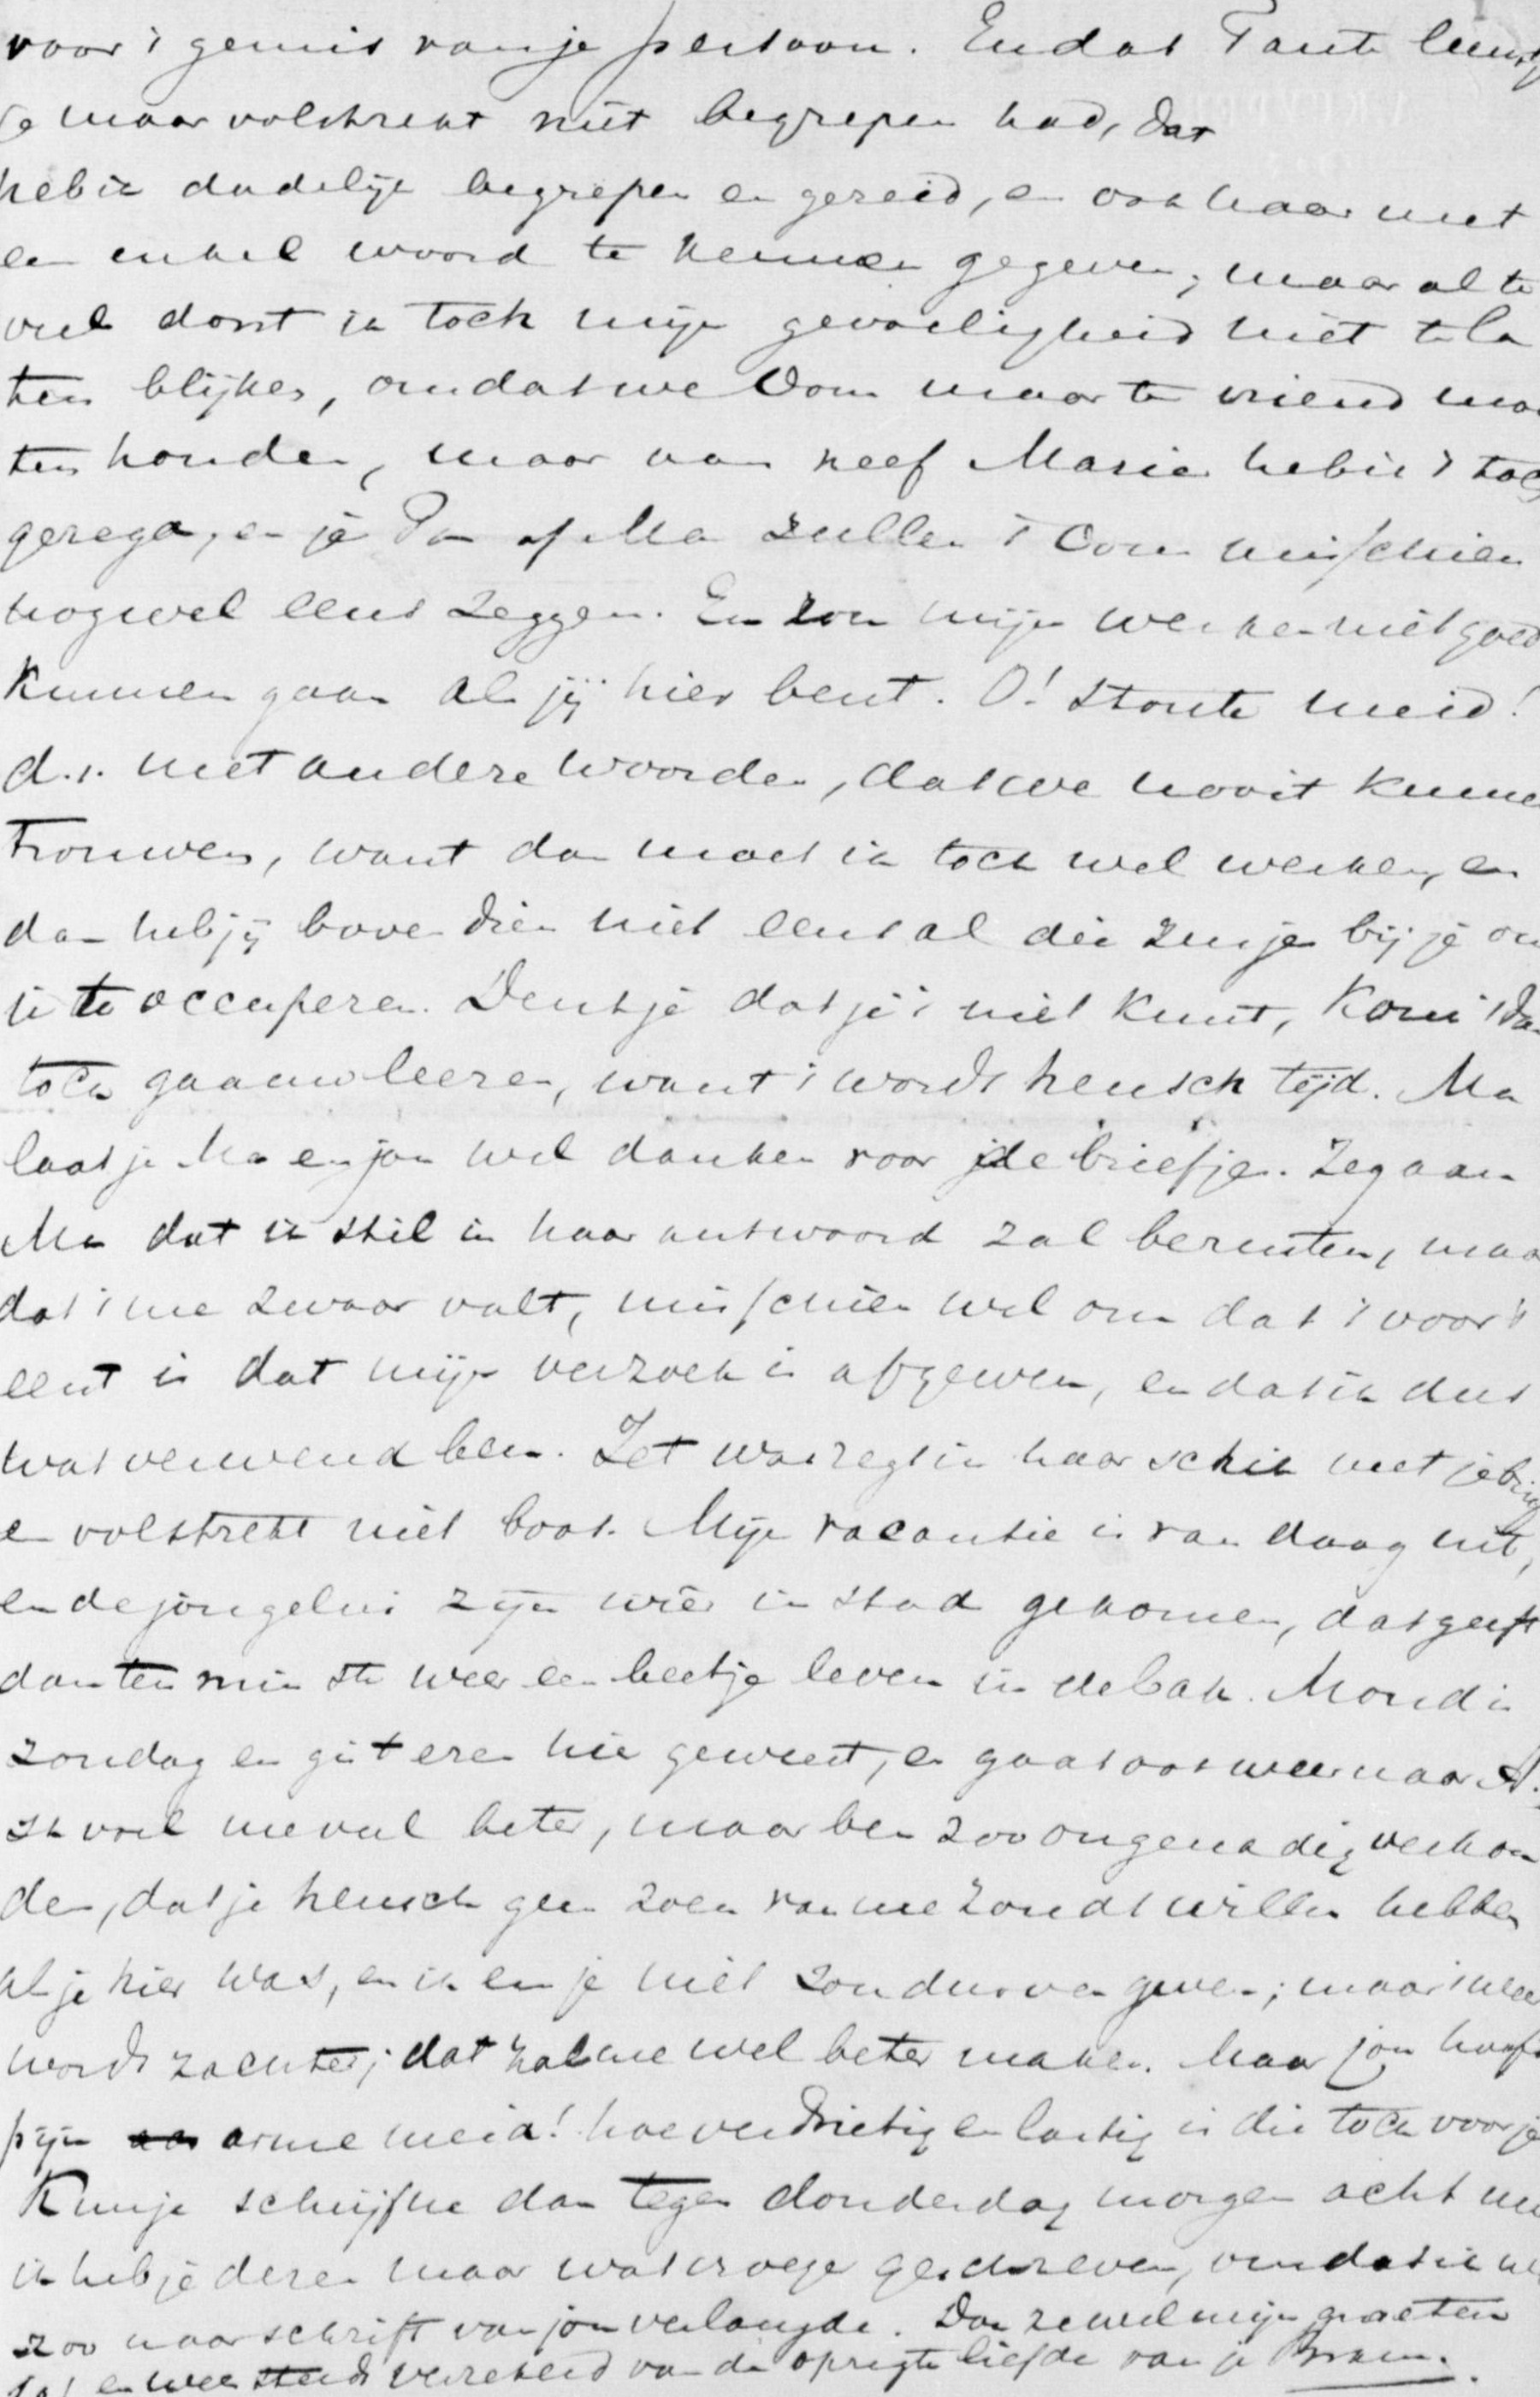 voor 't gemis van je persoon. En dat Tante
je maar volstrekt niet begrepen had, dat
heb ik dadelijk begrepen en gezeid, en ook haar met
een enkel woord te kennen gegeven, maar al te
veel dorst ik toch mijn gevoeligheid niet te la
ten blijken, omdat we Oom maar te vriend moe
ten houden, maar aan neef Marie heb ik 't toch
gezegd, en je Pa of Ma zullen 't Oom misschien
nog wel eens zeggen. En zou mijn werken niet goed
kunnen gaan als jij hier bent. O! stoute meid!
d.i. met andere woorden, dat we nooit kunnen
trouwen, want dan moet ik toch wel werken, en
dan heb jij bovendien niet eens al die zusjes bij je om
je te occuperen. Denk je dat je 't niet kunt, kom 't dan
toch gaauw leeren, want 't wordt heusch tijd. Ma
laat je Ma en jou wel danken voor de briefjes. Zeg aan
Ma dat ik stil in haar antwoord zal berusten, maar
dat 't me zwaar valt, misschien wel om dat 't voor 't
eerst is dat mijn verzoek is afgewezen, en dat ik dus
wat verwend ben. Zet was regt in haar schik met je
en volstrekt niet boos. Mijn vacantie is van daag uit,
en de jongelui zijn weer in stad gekomen, dat geeft
dan ten minste weer een beetje leven in de bak. Mond is
zondag en gisteren hier geweest, en gaat ook weer naar A.
Ik voel me veel beter, maar ben zoo ongenadig verkou
den, dat je heusch geen zoen van me zoudt willen hebben
als je hier was, en ik en je niet zou durven geven; maar 't weer
wordt zachter; dat zal me wel beter maken. Maar jou hoofd
pijn arme meid! hoe verdrietig en lastig is die toch voor je
Kun je schrijf me dan tegen donderdag morgen acht uur
ik heb je dezen maar wat vroeger geschreven, omdat ik
zoo naar schrift van jou verlangde. Dan ze wel mijn groeten
en wees steeds verzekerd van de opregte liefde van je Bram.